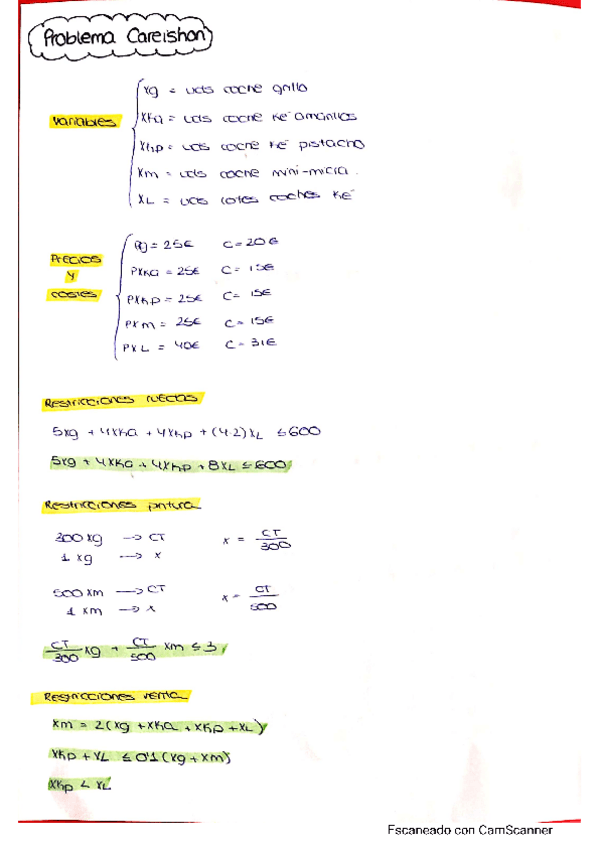 Problema Careishon
Variables
xg = uds coche grillo
xka = uds coche ké amarillos
xkp = uds coche ké pistacho
xm = uds coche mini-micra.
xL = uds lotes coches ké
Precios y costes
Pg = 25€ C = 20€
Pxka = 25€ C = 15€
Pxkp = 25€ C = 15€
Pxm = 25€ C = 15€
PxL = 40€ C = 31€
Restricciones ruedas
5xg + 4xka + 4xkp + (4·2)xL ≤ 600
5xg + 4xka + 4xkp + 8xL ≤ 600
Restricciones pintura
300 xg → CT x = CT/300
1 xg → x
500 xm → CT x = CT/500
1 xm → x
CT/300 xg + CT/500 xm ≤ 3
Restricciones venta
xm = 2(xg + xka + xkp + xL)
xkp + xL ≤ 0'1 (xg + xm)
xkp < xL
Escaneado con CamScanner